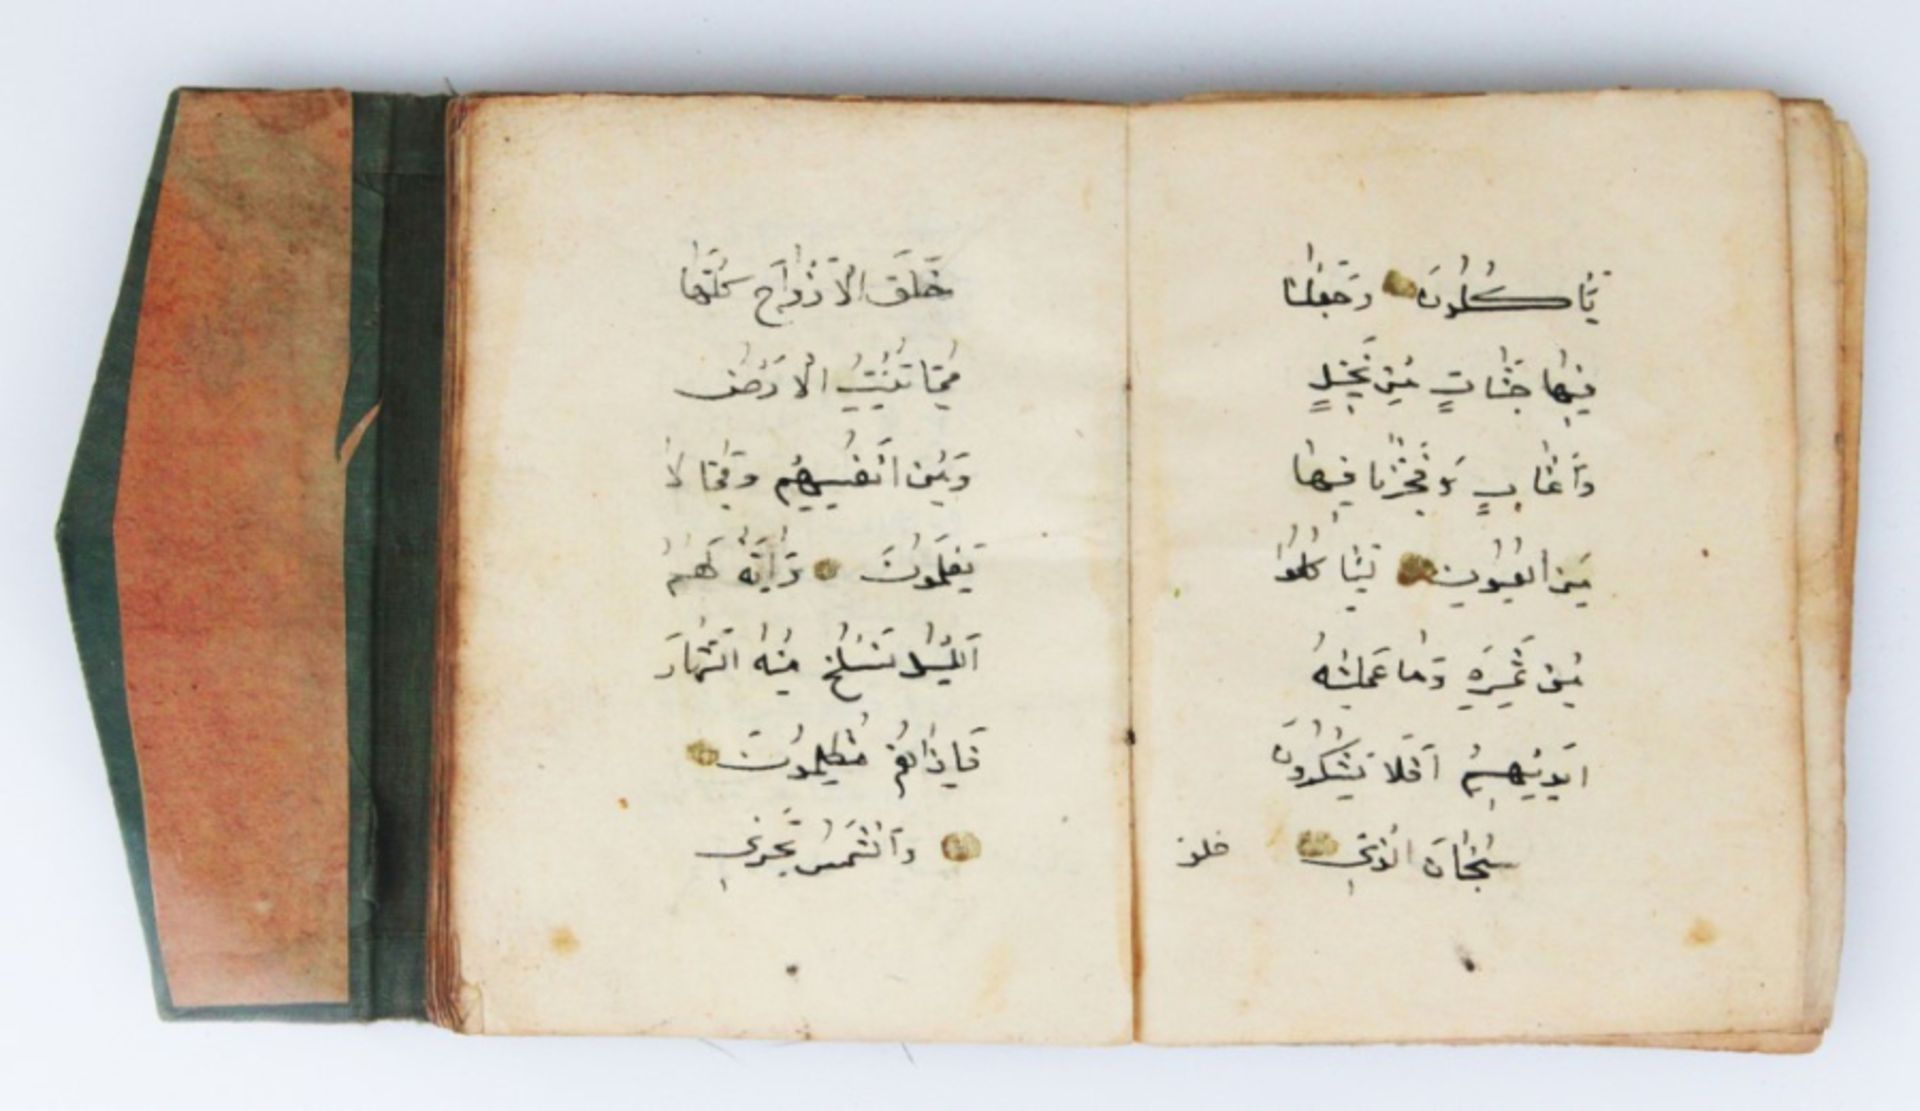 يَأْكُلُونَ وَجَعَلْنَا
فِيهَا جَنَّاتٍ مِنْ نَخِيلٍ
وَأَعْنَابٍ وَفَجَّرْنَا فِيهَا
مِنَ الْعُيُونِ لِيَأْكُلُوا
مِنْ ثَمَرِهِ وَمَا عَمِلَتْهُ
اَيْدِيهِمْ اَفَلَا يَشْكُرُونَ
سُبْحَانَ الَّذِي
خلق
خَلَقَ الْاَزْوَاجَ كُلَّهَا
مِمَّا تُنْبِتُ الْاَرْضُ
وَمِنْ اَنْفُسِهِمْ وَمِمَّا لَا
يَعْلَمُونَ وَاٰيَةٌ لَهُمُ
الَّيْلُ نَسْلَخُ مِنْهُ النَّهَارَ
فَاِذَا هُمْ مُظْلِمُونَ
وَالشَّمْسُ تَجْرِي